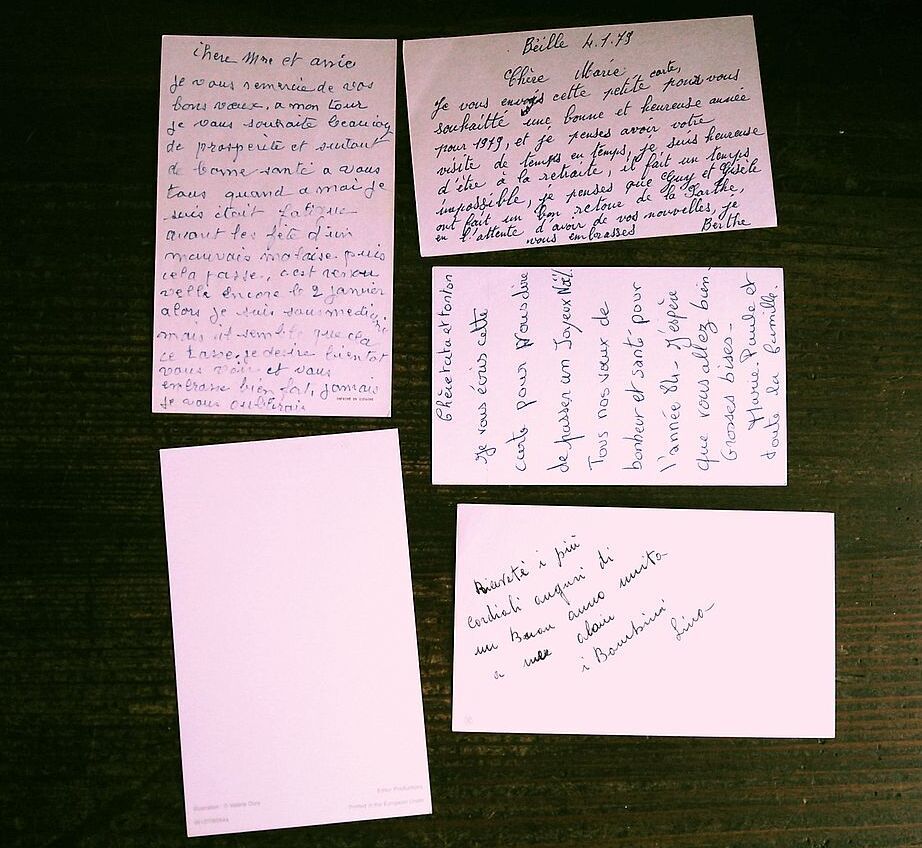 Chere Mme et amie
je vous remercie de vos
bons vœux, a mon tour
je vous souhaite beaucoup
de prosperité et surtout
de bonne santé a vous
tous quand a moi je
suis était fatigue
avant les fête d'un
mauvais malaise puis
cela passe, c'est renou
velle encore le 2 janvier
alors je suis sous medic
mais il semble que cela
ce tasse, je desire bientot
vous voir et vous
embrasse bien fort, jamais
je vous oublirais
Béille 4.1.79
Chère Marie
Je vous envois cette petite carte, pour vous
souhaitté une bonne et heureuse année
pour 1979, et je penses avoir votre
visite de temps en temps, je suis heureuse
d'être à la retraite, il fait un temps
impossible, je penses que Guy et Gisèle
ont fait un bon retour de la Sarthe,
en l'attente d'avoir de vos nouvelles, je
vous embrasses Berthe
Chère tata et tonton
Je vous écris cette
carte pour vous dire
de passer un Joyeux Noël.
Tous nos vœux de
bonheur et santé pour
l'année 84. J'espère
que vous allez bien.
Grosses bises.
Marie Paule et
toute la famille.
Illustration : © Valérie
Editor Productions
Printed in the European Union
Riceveté i più
cordiali auguri di
un Buon anno unita
a me alain
i Bambini
Lina